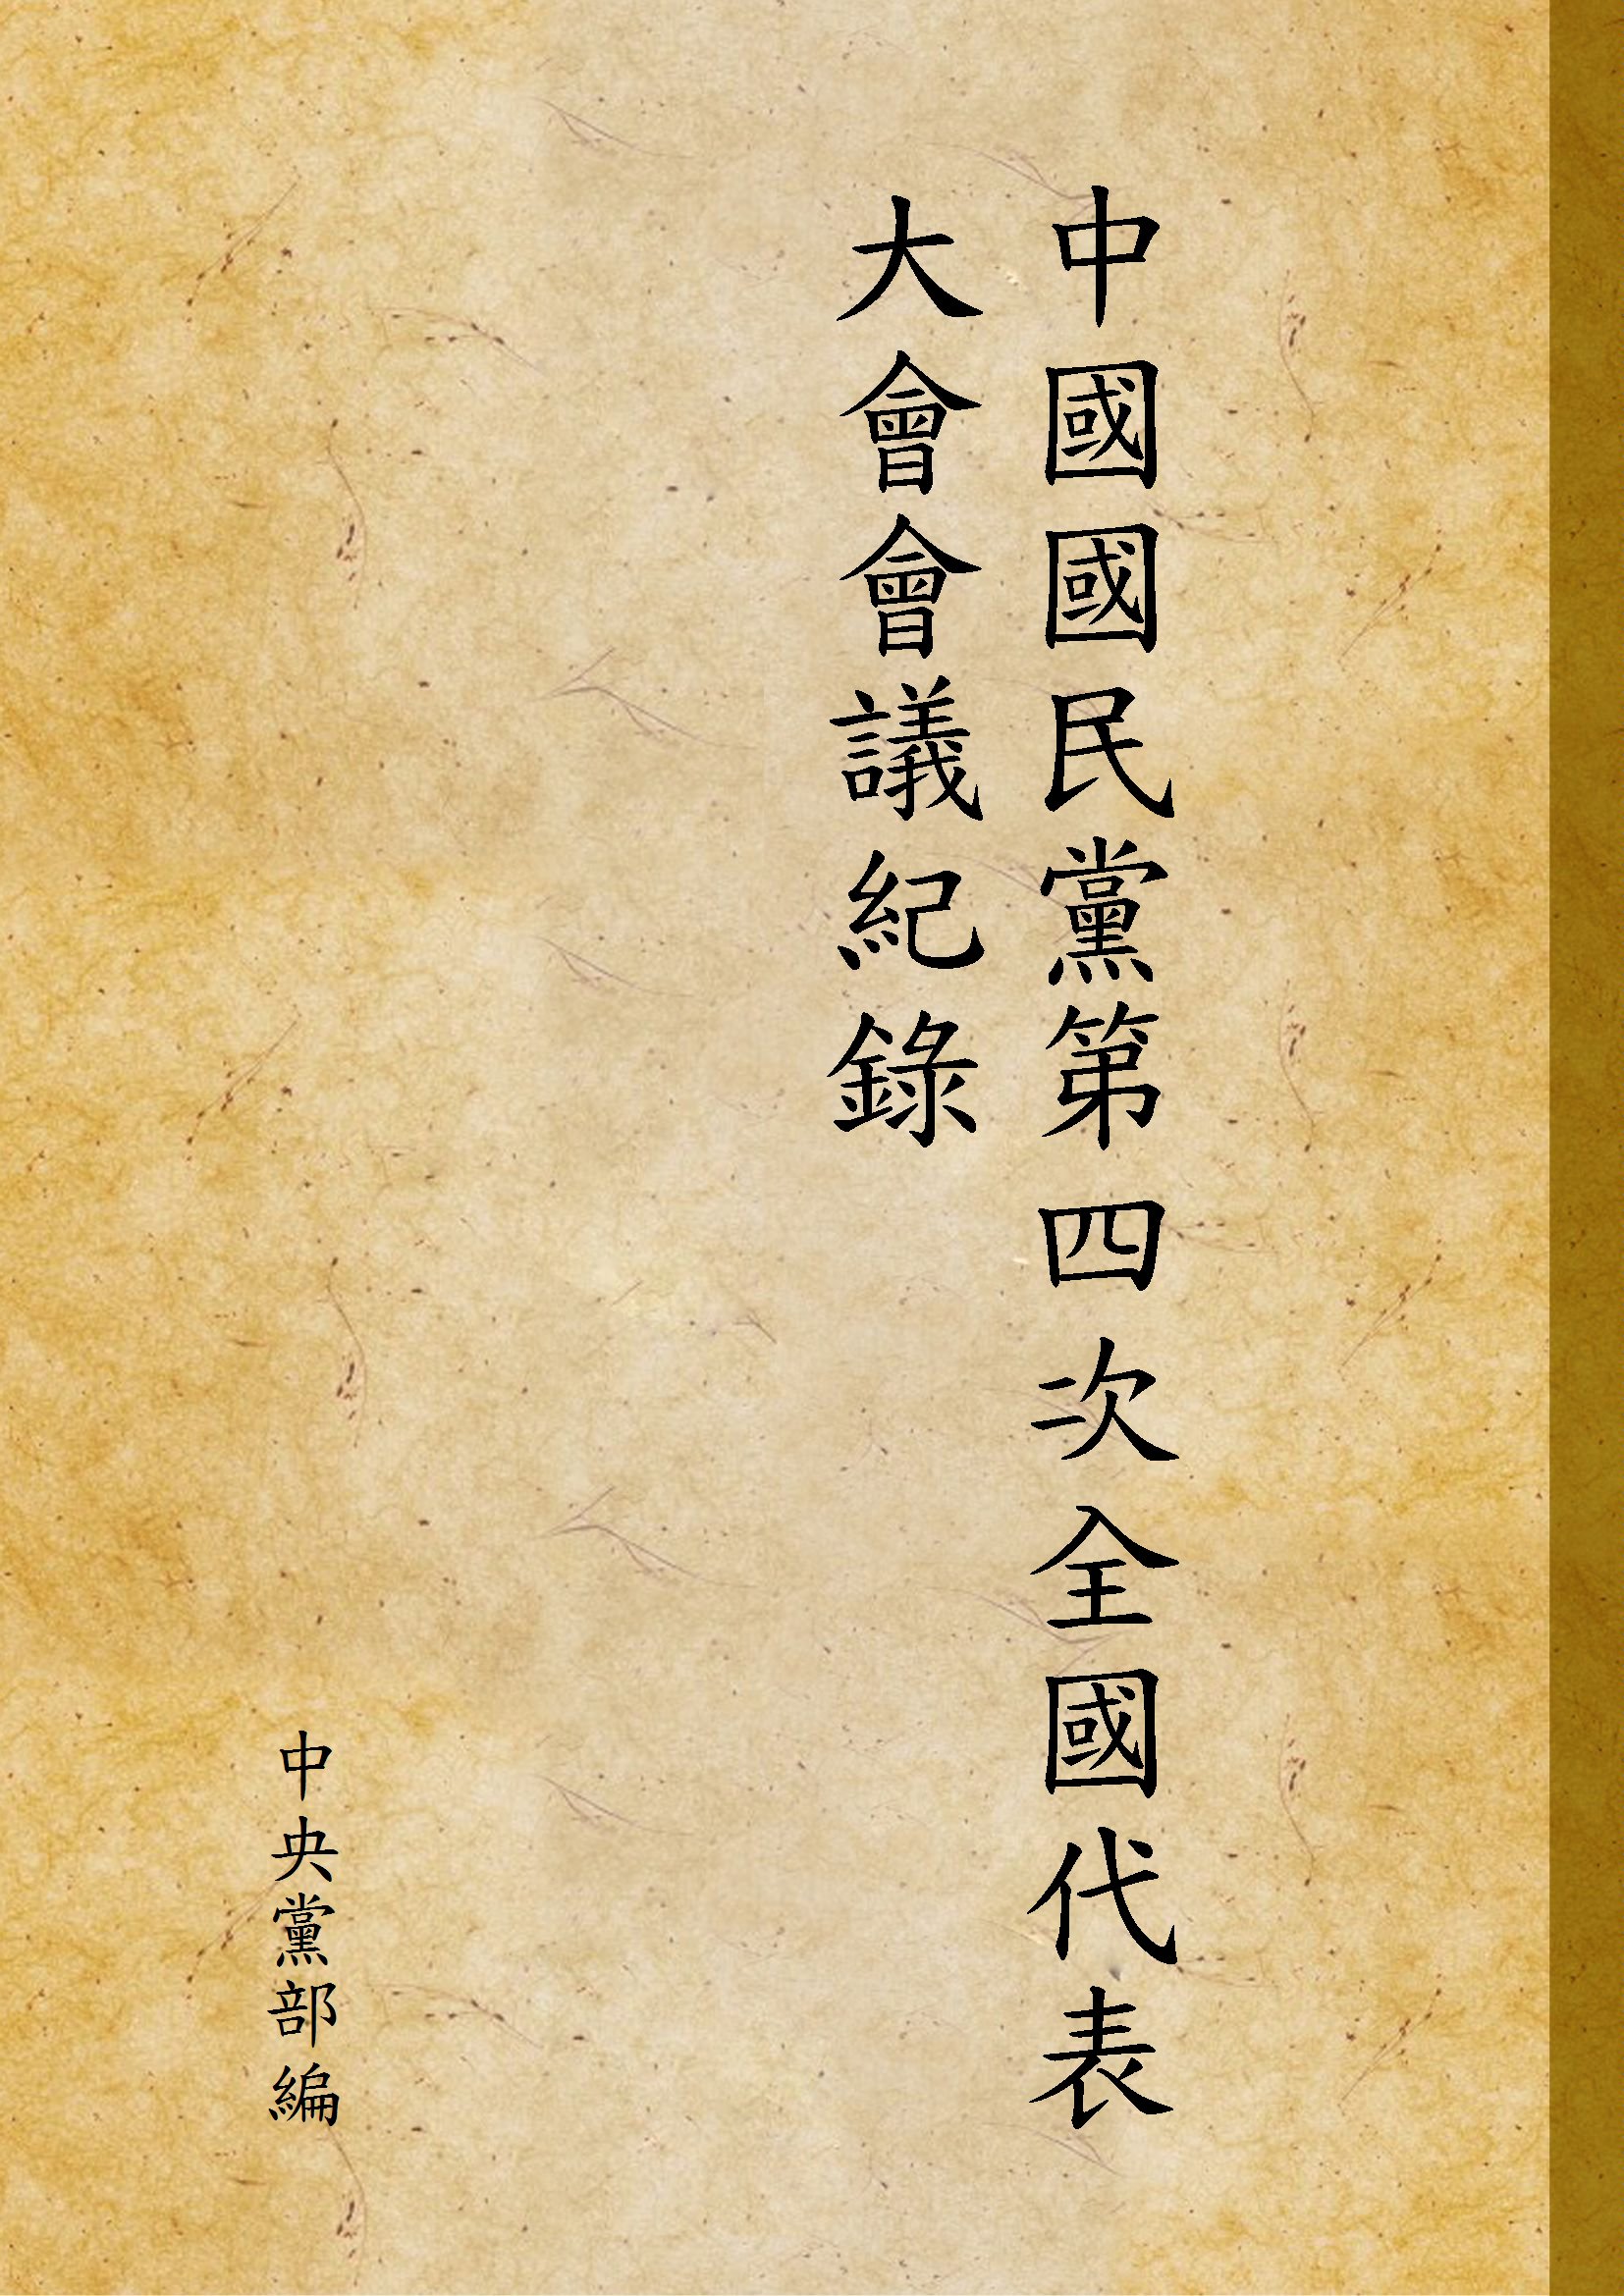 中國國民黨第四次全國代表
大會會議紀錄
中央黨部編